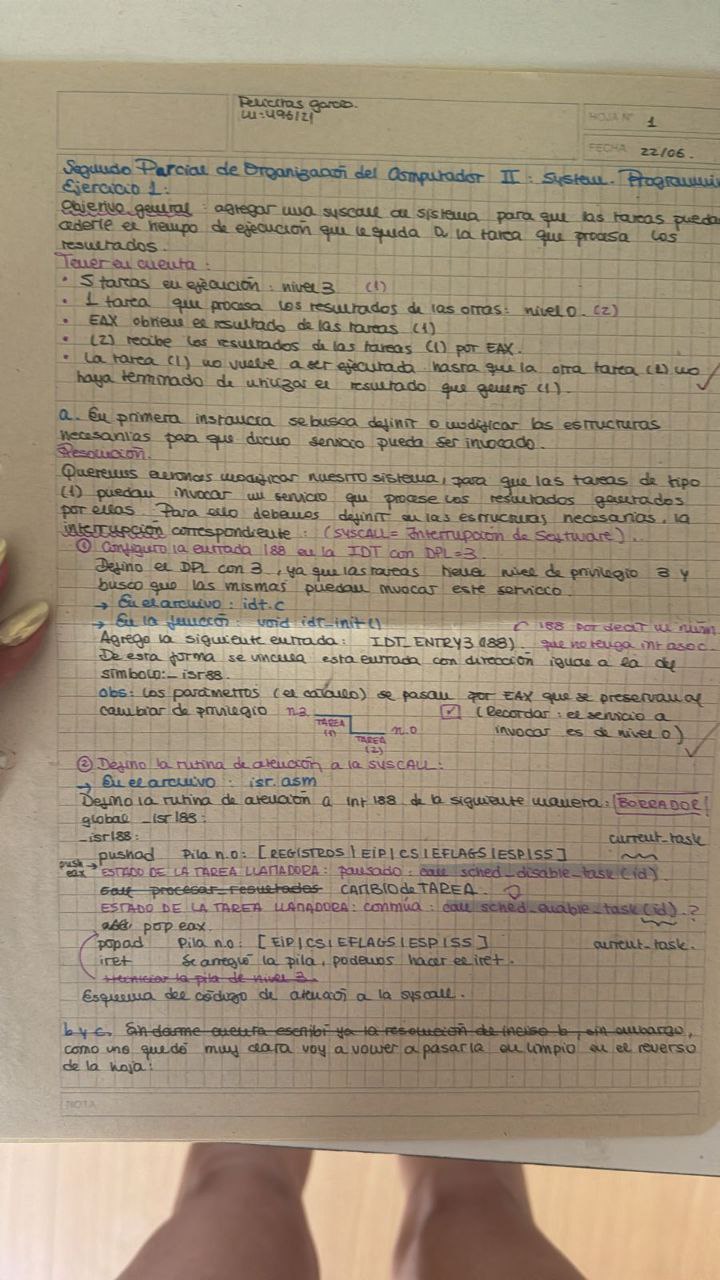 Felicitas Garcia.
LU: 496/21
HOJA N° 1
FECHA 22/06.
Segundo Parcial de Organización del Computador II: System. Programmin
Ejercicio 1:
Objetivo general: agregar una syscall al sistema para que las tareas pueda
cederle el tiempo de ejecución que le queda a la tarea que procesa los
resultados.
Tener en cuenta:
• 5 tareas en ejecución: nivel 3 (1)
• 1 tarea que procesa los resultados de las otras: nivel 0. (2)
• EAX obtiene el resultado de las tareas (1)
• (2) recibe los resultados de las tareas (1) por EAX.
• La tarea (1) no vuelve a ser ejecutada hasta que la otra tarea (2) no
haya terminado de utilizar el resultado que generó (1).
a. En primera instancia se busca definir o modificar las estructuras
necesarias para que dicho servicio pueda ser invocado.
Resolución.
Queremos entonces modificar nuestro sistema, para que las tareas de tipo
(1) puedan invocar un servicio que procese los resultados generados
por ellas. Para ello debemos definir en las estructuras necesarias, la
interrupción correspondiente: (SYSCALL = Interrupción de Software)..
① Configuro la entrada 188 en la IDT con DPL=3.
Defino el DPL con 3, ya que las tareas tienen nivel de privilegio 3 y
busco que las mismas puedan invocar este servicio.
→ En el archivo: idt.c
→ En la función: void idt_init() 188 por decir un núm.
Agrego la siguiente entrada: IDT_ENTRY3(188) que no tenga int asoc.
De esta forma se vincula esta entrada con dirección igual a la del
símbolo: _isr88.
obs: los parámetros (el cálculo) se pasan por EAX que se preserva al
cambiar de privilegio n.3 TAREA (1) TAREA (2) n.0 (Recordar: el servicio a
invocar es de nivel 0)
② Defino la rutina de atención a la SYSCALL:
→ En el archivo: isr.asm
Defino la rutina de atención a int 188 de la siguiente manera: BORRADOR!
global _isr188:
_isr188: current_task
pushad Pila n.0: [REGISTROS | EIP | CS | EFLAGS | ESP | SS]
push eax → ESTADO DE LA TAREA LLAMADORA: pausado: call sched_disable_task(id).
call procesar_resultados CAMBIO de TAREA.
ESTADO DE LA TAREA LLAMADORA: continúa: call sched_enable_task(id).?
pop eax.
popad Pila n.0: [EIP | CS | EFLAGS | ESP | SS] current_task.
iret Se arregló la pila, podemos hacer el iret.
la pila de nivel 3
Esquema del código de atención a la syscall.
b y c. Sin darme cuenta escribí ya la resolución de inciso b, sin embargo,
como no quedó muy clara voy a volver a pasarla en limpio en el reverso
de la hoja:
NOTA